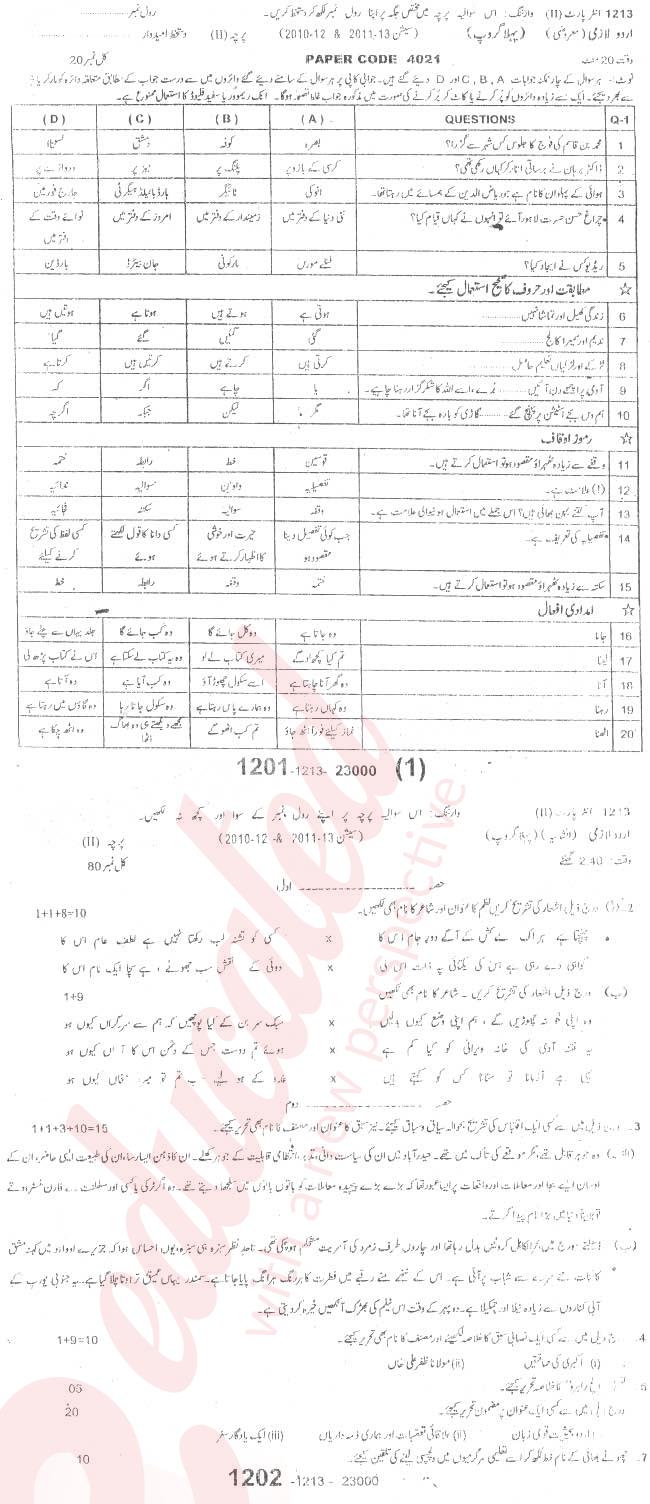 1213 انٹر پارٹ (II) وارننگ: اس سوالیہ پرچہ میں مختص جگہ پر اپنا رول نمبر لکھ کر دستخط کریں۔ رول نمبر
اردو لازمی (معروضی) (پہلا گروپ) (سیشن 13-2011 & 12-2010) پرچہ (II) دستخط امیدوار
وقت 20 منٹ PAPER CODE 4021 کل نمبر 20
نوٹ:- ہر سوال کے چار ممکنہ جوابات C, B, A اور D دیئے گئے ہیں۔ جوابی کاپی پر ہر سوال کے سامنے دیئے گئے دائروں میں سے درست جواب کے مطابق متعلقہ دائرہ کو مارکر یا پین
سے بھر دیجئے۔ ایک سے زیادہ دائروں کو پُر کرنے یا کاٹ کر پُر کرنے کی صورت میں مذکورہ جواب غلط تصور ہوگا۔ انک ریموور یا سفید فلیوڈ کا استعمال ممنوع ہے۔
Q-1 QUESTIONS (A) (B) (C) (D)
1 محمد بن قاسم کی فوج کا جلوس کس شہر سے گزرا؟ بصرہ کوفہ دمشق
2 ڈاکٹر برہان نے برساتی اتار کر کہاں رکھی تھی؟ کرسی کے بازو پر پلنگ پر میز پر دروازے پر
3 ہوائی کے پہلوان کا نام ہے جو ریاض الدین کے ہمسائے میں رہتا تھا۔ انوکی ٹائیگر
4 چراغ حسن حسرت لاہور آئے تو انہوں نے کہاں قیام کیا؟ نئی دنیا کے دفتر میں زمیندار کے دفتر میں امروز کے دفتر میں نوائے وقت کے
دفتر میں
5 ریڈیو کس نے ایجاد کیا؟ مارکونی جان بیئرڈ بارڈین
☆ مطابقت اور حروف کا صحیح استعمال کیجئے۔
6 زندگی کھیل اور تماشا نہیں ............ ہوتی ہے ہوتے ہیں ہوتا ہے ہوتیں ہیں
7 ندیم اور سمیرا کالج ............ گئی گئیں گئے گیا
8 لڑکے اور لڑکیاں تعلیم حاصل ............ کرتی ہیں کرتے ہیں کرتیں ہیں کرتا ہے
9 آدمی پر اچھے دن آئیں ............ بُرے، اسے اللہ کا شکر گزار رہنا چاہیے۔ یا چاہے اگر کہ
10 ہم دس بجے اسٹیشن پر پہنچ گئے ............ گاڑی کو بارہ بجے آنا تھا۔ مگر لیکن جبکہ اگرچہ
☆ رموز اوقاف
11 وقفے سے زیادہ ٹھہراؤ مقصود ہو تو استعمال کرتے ہیں۔ قوسین خط رابطہ ختمہ
12 (!) علامت ہے۔ تفصیلیہ واوین سوالیہ ندائیہ
13 آپ کتنے بہن بھائی ہیں؟ اس جملے میں استعمال ہونیوالی علامت ہے۔ وقفہ سوالیہ سکتہ فجائیہ
14 تفصیلیہ کی تعریف ہے۔ جب کوئی تفصیل دینا حیرت اور خوشی کسی دانا کا قول لکھتے کسی لفظ کی تشریح
مقصود ہو کا اظہار کرتے ہوئے ہوئے کرنے کیلئے
15 سکتہ سے زیادہ ٹھہراؤ مقصود ہو تو استعمال کرتے ہیں۔ ختمہ وقفہ رابطہ خط
☆ امدادی افعال
16 جانا وہ جانا ہے وہ کل جائے گا وہ کب جائے گا جلد یہاں سے چلے جاؤ
17 لینا تم کیا کچھ لو گے میری کتاب لے لو وہ یہ کتاب لے سکتا ہے اس نے کتاب پڑھ لی
18 آنا وہ گھر آنا چاہتا ہے اسے سکول چھوڑ آؤ وہ کب آیا ہے وہ آتا ہے
19 رہنا وہ کہاں رہتا ہے وہ ہمارے پاس رہتا ہے وہ سکول جاتا رہا وہ گاؤں میں رہتا ہے
20 اٹھنا نماز کیلئے فوراً اٹھ جاؤ تم کب اٹھو گے مجھے دیکھتے ہی وہ بھاگ اٹھا وہ اٹھ چکا ہے
1201-1213- 23000 (1)
1213 انٹر پارٹ (II) وارننگ: اس سوالیہ پرچہ پر اپنے رول نمبر کے سوا اور کچھ نہ لکھیں۔
اردو لازمی (انشائیہ) (پہلا گروپ) (سیشن 13-2011 & 12-2010) پرچہ (II)
وقت: 2.40 گھنٹے کل نمبر 80
حصہ اول
2- (الف) درج ذیل اشعار کی تشریح کریں نظم کا عنوان اور شاعر کا نام بھی لکھیں۔ 1+1+8=10
پہنچتا ہے ہر اک مے کش کے آگے دورِ جام اس کا x کسی کو تشنہ لب رکھتا نہیں ہے لطفِ عام اس کا
گواہی دے رہی ہے اس کی یکتائی پہ ذات اس کی x دوئی کے نقش سب جھوٹے، ہے سچا ایک نام اس کا
(ب) درج ذیل اشعار کی تشریح کریں۔ شاعر کا نام بھی لکھیں 1+9
وہ اپنی خو نہ چھوڑیں گے، ہم اپنی وضع کیوں بدلیں x سبک سر بن کے کیا پوچھیں کہ ہم سے سرگراں کیوں ہو
یہ فتنہ آدمی کی خانہ ویرانی کو کیا کم ہے x ہوئے تم دوست جس کے دشمن اس کا آسماں کیوں ہو
یہی ہے آزمانا تو ستانا کس کو کہتے ہیں x عدو کے ہو لیے جب تم تو میرا امتحاں کیوں ہو
حصہ دوم
3- درج ذیل میں سے کسی ایک اقتباس کی تشریح بحوالہ سیاق و سباق کیجئے۔ نیز سبق کا عنوان اور مصنف کا نام بھی تحریر کیجئے۔ 1+1+3+10=15
(الف) وہ جوہر قابل تھے، مگر موقعے کی تاک میں تھے۔ حیدرآباد میں ان کی سیاست دانی، تدبر، انتظامی قابلیت کے جوہر کھلے۔ ان کا ذہن ایسا رسا، ان کی طبیعت ایسی حاضر، ان کے
اوسان ایسے بجا اور معاملات اور واقعات پر ایسا عبور تھا کہ بڑے بڑے پیچیدہ معاملات کو باتوں باتوں میں سلجھا دیتے تھے۔ وہ اگر ٹرکی یا کسی اور سلطنت کے فارن منسٹر ہوتے
تو یقیناً دنیا میں بڑا نام پیدا کرتے۔
(ب) ڈھلتے سورج میں بحرالکاہل کروٹیں بدل رہا تھا اور چاروں طرف زمرد کی آمریت مستحکم ہو چکی تھی۔ تاحدِ نظر سبزہ ہی سبزہ، یوں احساس ہوا کہ جزیرے اوہاؤ میں کہنہ مشق
کائنات نئے سرے سے شباب پر آئی ہے۔ اس کے ننھے منے رقبے میں فطرت کا ہر رنگ ہر آہنگ پایا جاتا ہے۔ سمندر یہاں عمیق تر ہوتا چلا گیا ہے۔ یہ جنوبی یورپ کے
آبی کناروں سے زیادہ نیلا اور چمکیلا ہے۔ دوپہر کے وقت اس نیلم کی بھڑک آنکھیں خیرہ کر دیتی ہے۔
4- درج ذیل میں سے کسی ایک نصابی سبق کا خلاصہ لکھیئے اور مصنف کا نام بھی تحریر کیجئے۔ 1+9=10
(i) اکبری کی حماقتیں (ii) مولانا ظفر علی خاں
5 کا خلاصہ تحریر کیجئے۔ 05
درج ذیل میں سے کسی ایک عنوان پر مضمون تحریر کیجئے۔ 20
اردو بحیثیت قومی زبان (ii) علاقائی تعصبات اور ہماری ذمہ داریاں (iii) ایک یادگار سفر
7- چھوٹے بھائی کے نام خط لکھ کر اسے تعلیمی سرگرمیوں میں دلچسپی لینے کی تلقین کیجئے۔ 10
1202 -1213 - 23000
educated
with a new perspective